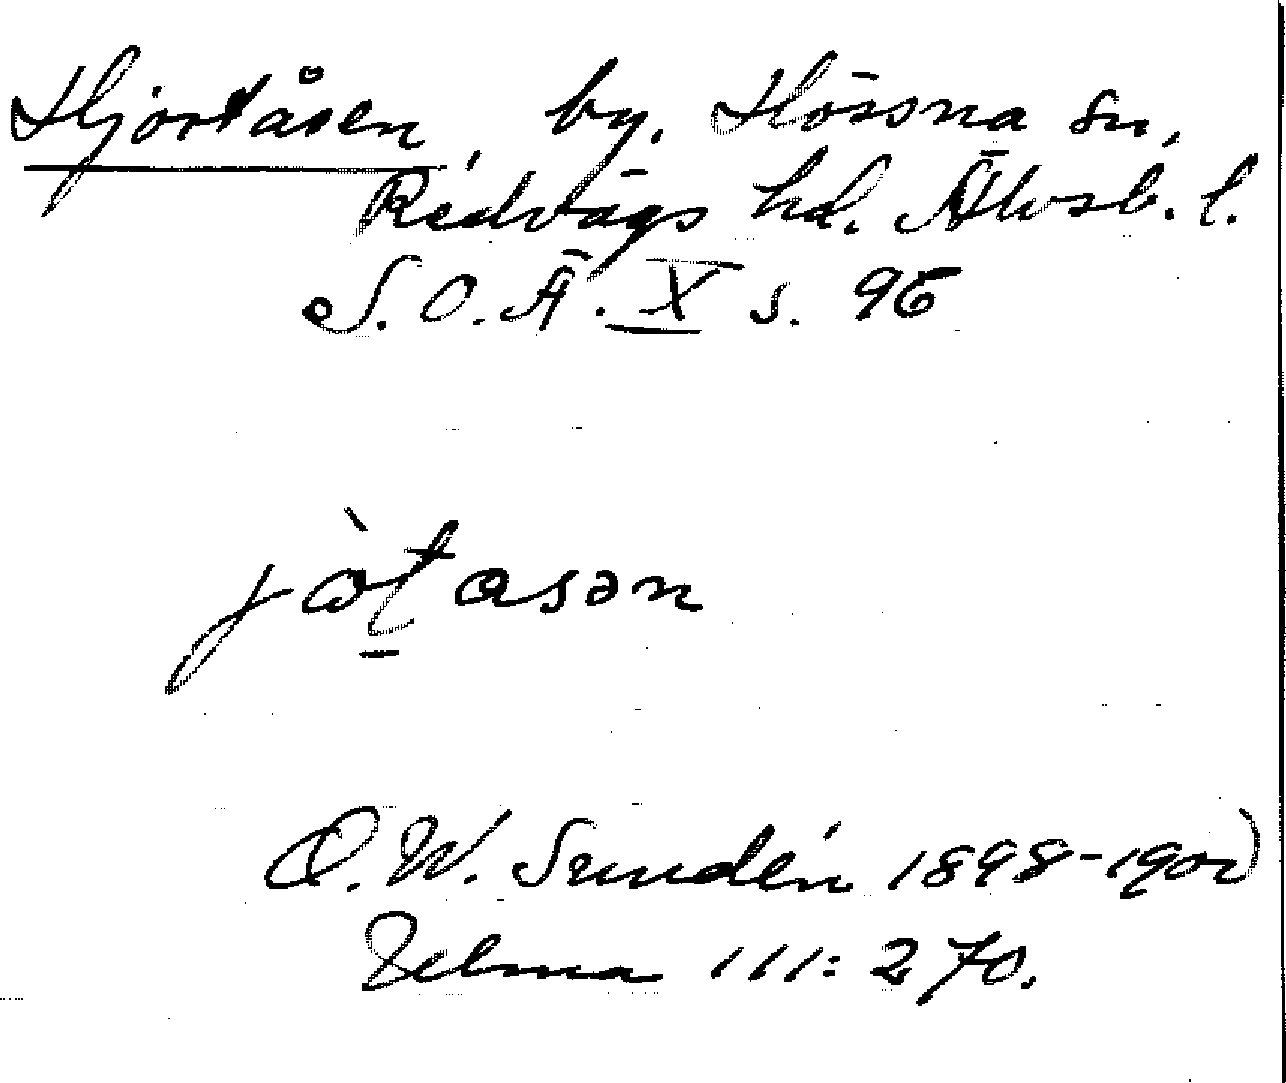 Hjortåsen, by. Hössna sn,
Redvägs hd. Älvsb. l.
S. O. Ä. X s. 96
jòt asən
D. W. Sundén 1898-190
Zelma 111: 270.